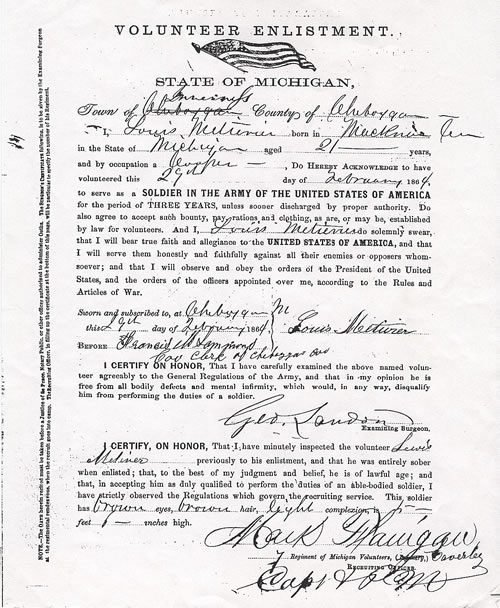 VOLUNTEER ENLISTMENT.
STATE OF MICHIGAN,
Town of Cheboygan County of Cheboygan
I, Louis Metivier born in Mackinac
in the State of Michigan aged 21 years,
and by occupation a Cooper, DO HEREBY ACKNOWLEDGE to have
volunteered this 29th day of February 1864,
to serve as a SOLDIER IN THE ARMY OF THE UNITED STATES OF AMERICA
for the period of THREE YEARS, unless sooner discharged by proper authority. Do
also agree to accept such bounty, pay, rations and clothing, as are, or may be, established
by law for volunteers. And I, Louis Metivier do solemnly swear,
that I will bear true faith and allegiance to the UNITED STATES OF AMERICA, and that
I will serve them honestly and faithfully against all their enemies or opposers whom-
soever; and that I will observe and obey the orders of the President of the United
States, and the orders of the officers appointed over me, according to the Rules and
Articles of War.
Sworn and subscribed to, at Cheboygan M
this 29th day of February 1864. Louis Metivier
BEFORE Francis M
Clerk of Cheboygan Co
I CERTIFY ON HONOR, That I have carefully examined the above named volun-
teer agreeably to the General Regulations of the Army, and that in my opinion he is
free from all bodily defects and mental infirmity, which would, in any way, disqualify
him from performing the duties of a soldier.
Geo. Landon
Examining Surgeon.
I CERTIFY, ON HONOR, That I have minutely inspected the volunteer Louis
Metivier previously to his enlistment, and that he was entirely sober
when enlisted; that, to the best of my judgment and belief, he is of lawful age; and
that, in accepting him as duly qualified to perform the duties of an able-bodied soldier, I
have strictly observed the Regulations which govern the recruiting service. This soldier
has brown eyes, brown hair, light complexion, is 5
feet inches high.
Mark Flanigan
Regiment of Michigan Volunteers, Cavalry
RECRUITING OFFICER.
Capt &